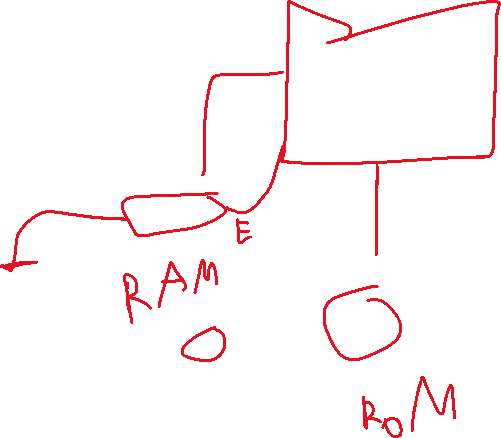 E
RAM
ROM